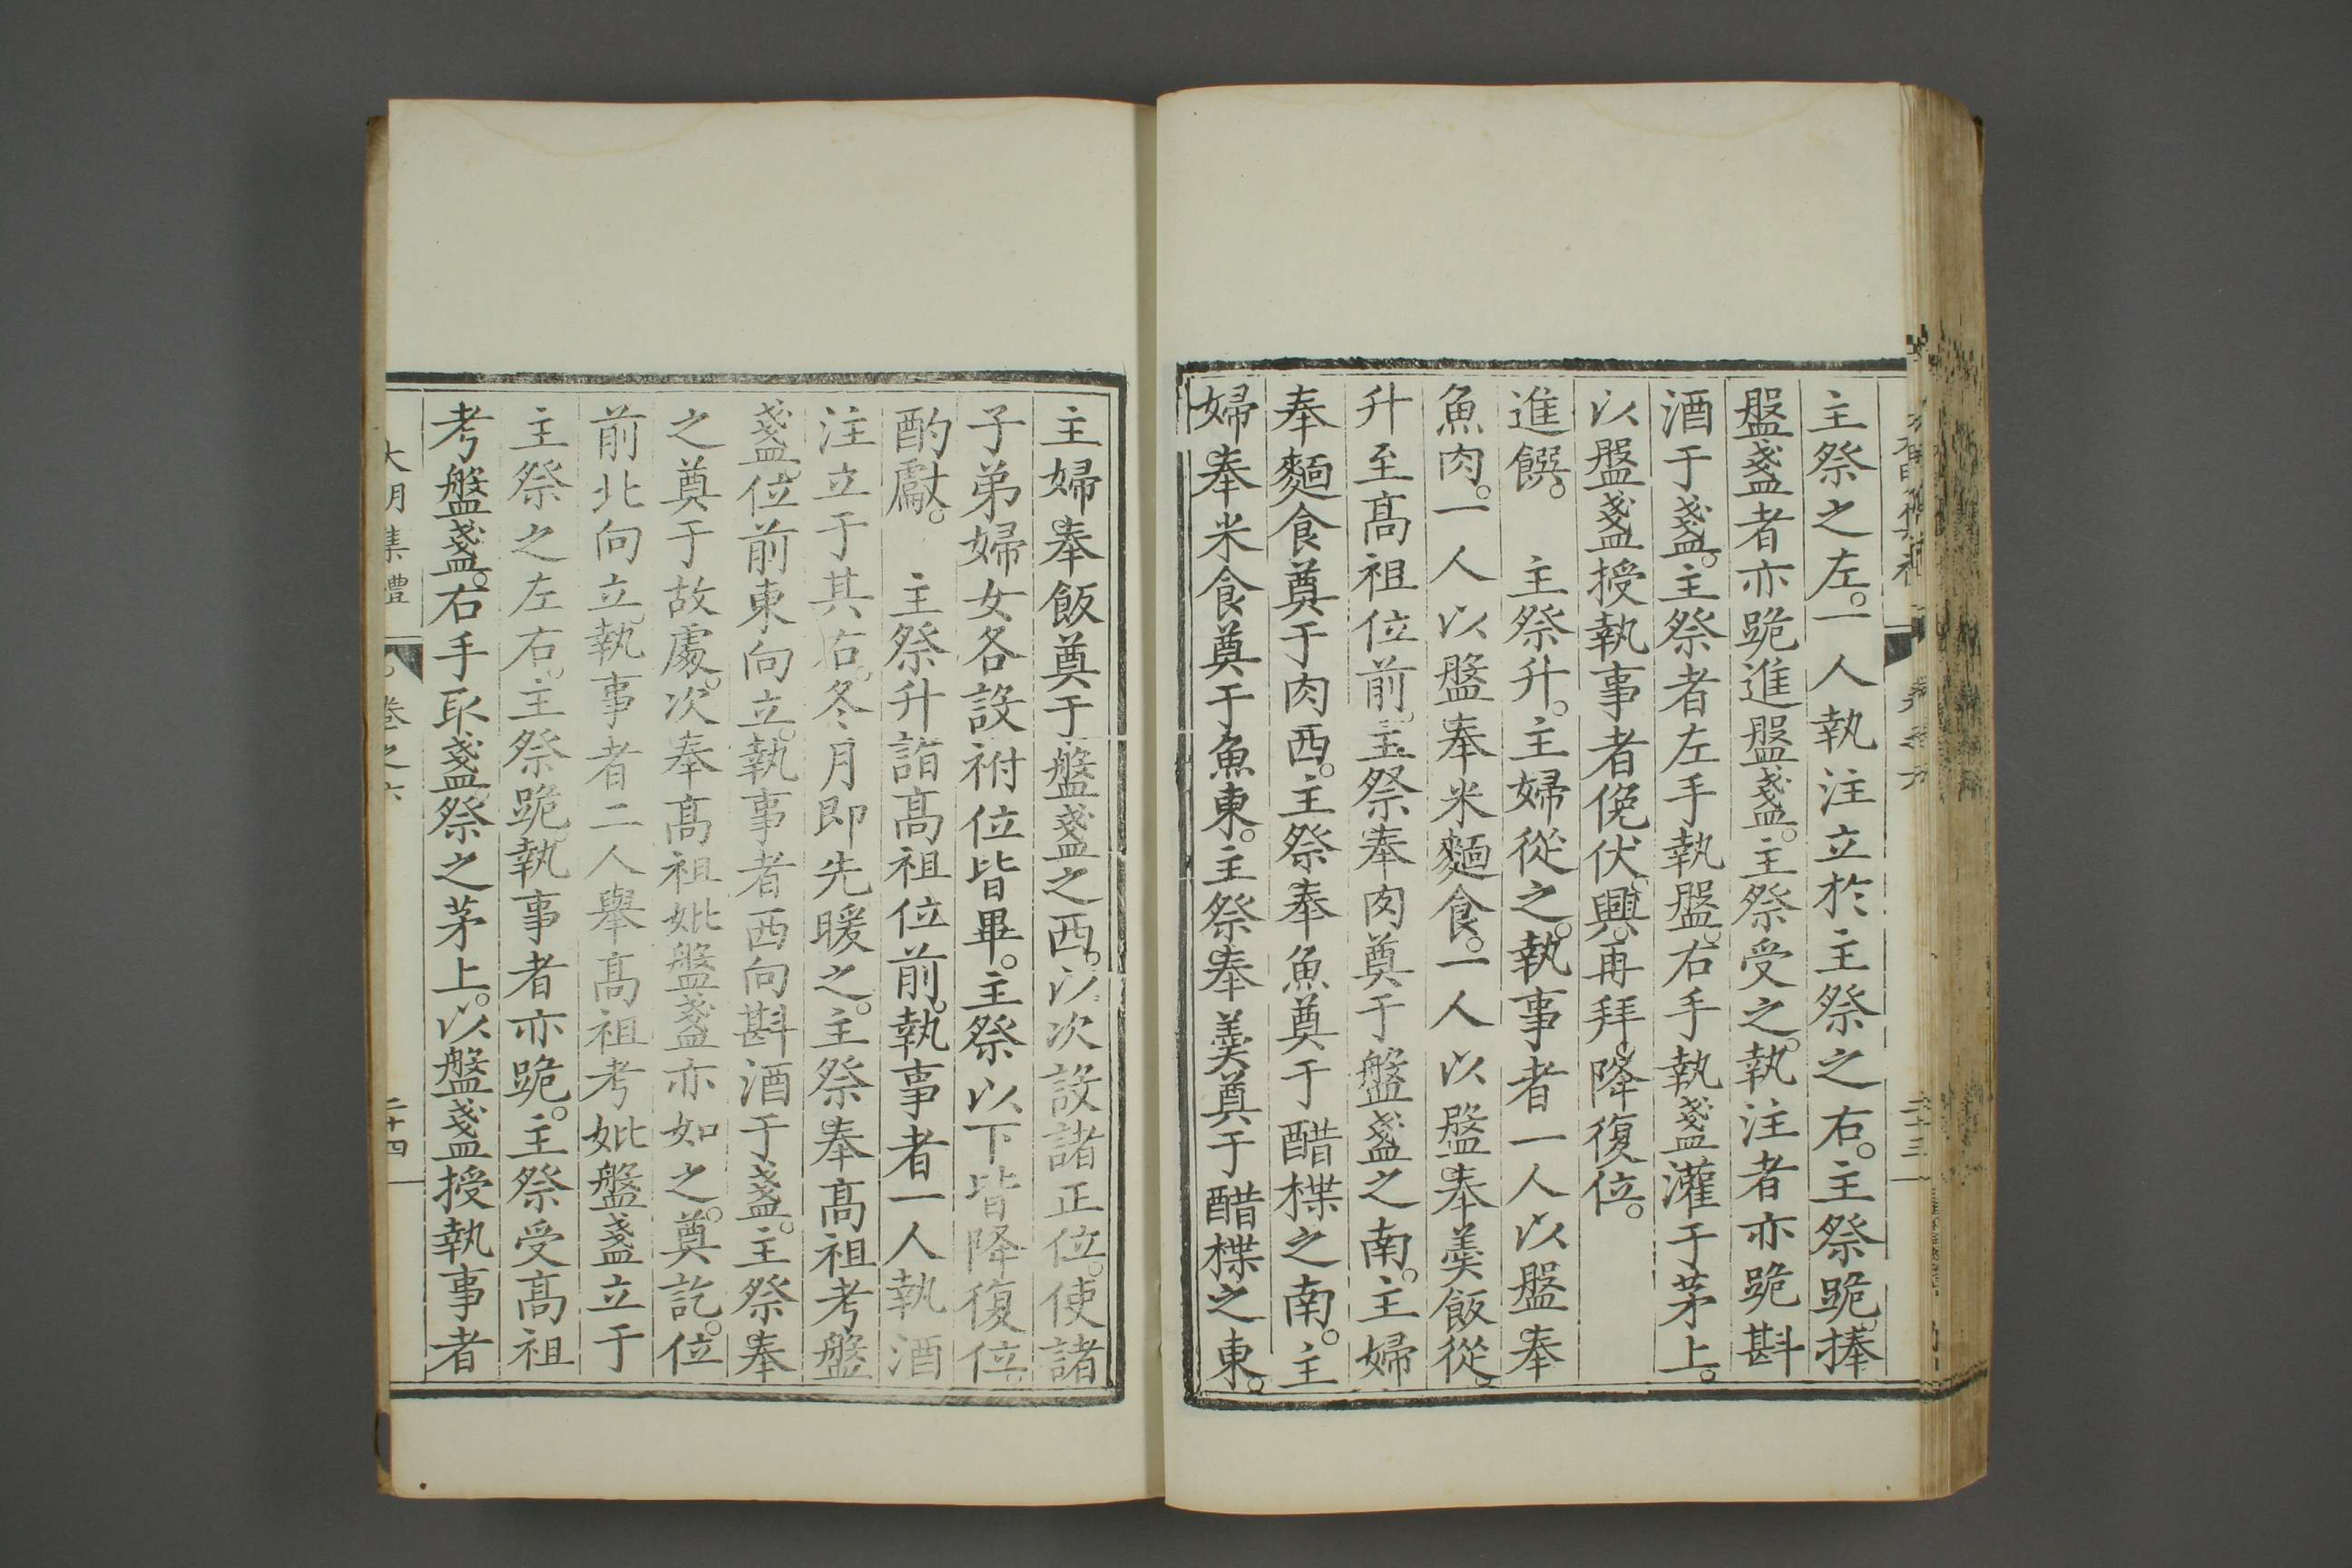 主祭之左。一人執注立於主祭之右。主祭跪。捧
盤盞者亦跪進盤盞。主祭受之。執注者亦跪斟
酒于盞。主祭者左手執盤。右手執盞灌于茅上。
以盤盞授執事者俛伏。興。再拜。降復位。
進饌。 主祭升。主婦從之。執事者一人以盤奉
魚肉。一人以盤奉米麵食。一人以盤奉羹飯從。
升至高祖位前。主祭奉肉奠于盤盞之南。主婦
奉麵食奠于肉西。主祭奉魚奠于醋楪之南。主
婦奉米食奠于魚東。主祭奉羹奠于醋楪之東。
主婦奉飯奠于盤盞之西。以次設諸正位。使諸
子弟婦女各設祔位皆畢。主祭以下皆降復位。
酌獻。 主祭升詣高祖位前。執事者一人執酒
注立于其右。冬月即先暖之。主祭奉高祖考盤
盞。位前東向立。執事者西向斟酒于盞。主祭奉
之奠于故處。次奉高祖妣盤盞亦如之。奠訖。位
前北向立。執事者二人舉高祖考妣盤盞立于
主祭之左右。主祭跪。執事者亦跪。主祭受高祖
考盤盞。右手取盞祭之茅上。以盤盞授執事者
大明集禮 卷之六 二十四